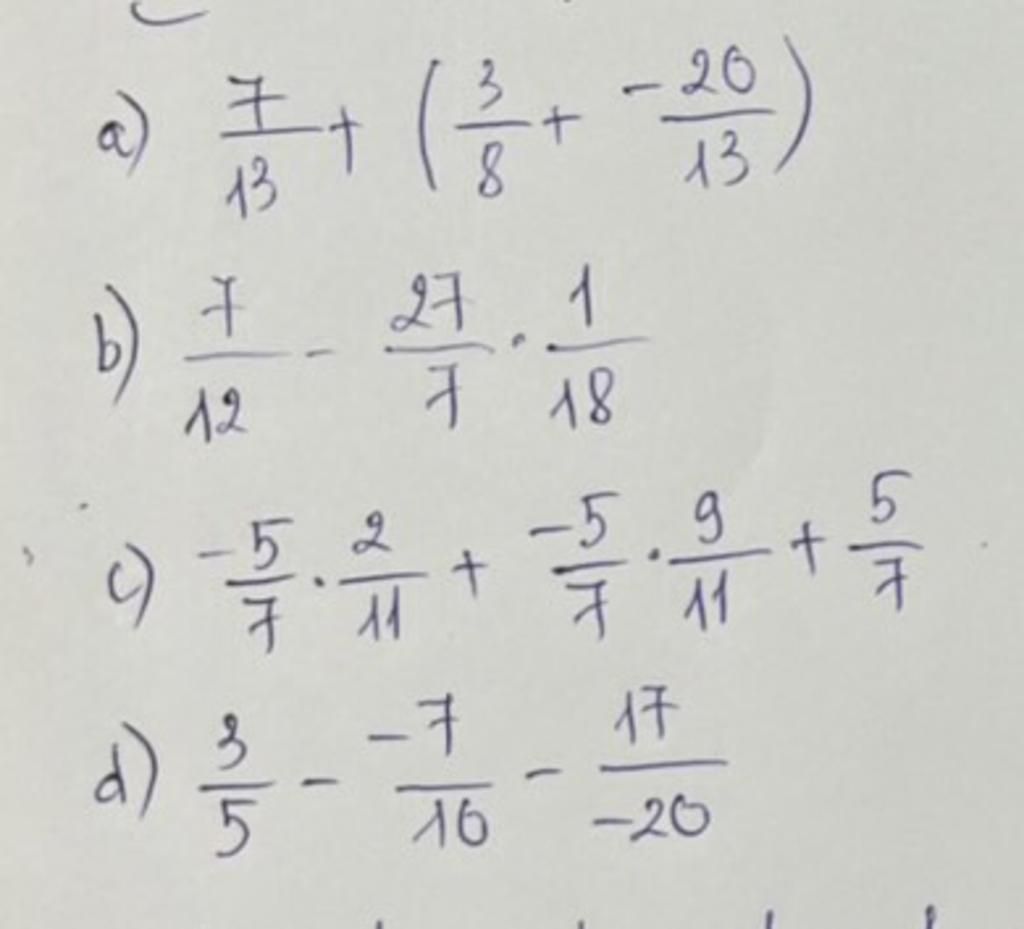 a) 7/13 + (3/8 + -20/13)
b) 7/12 - 27/7 · 1/18
c) -5/7 · 2/11 + -5/7 · 9/11 + 5/7
d) 3/5 - -7/10 - 17/-20